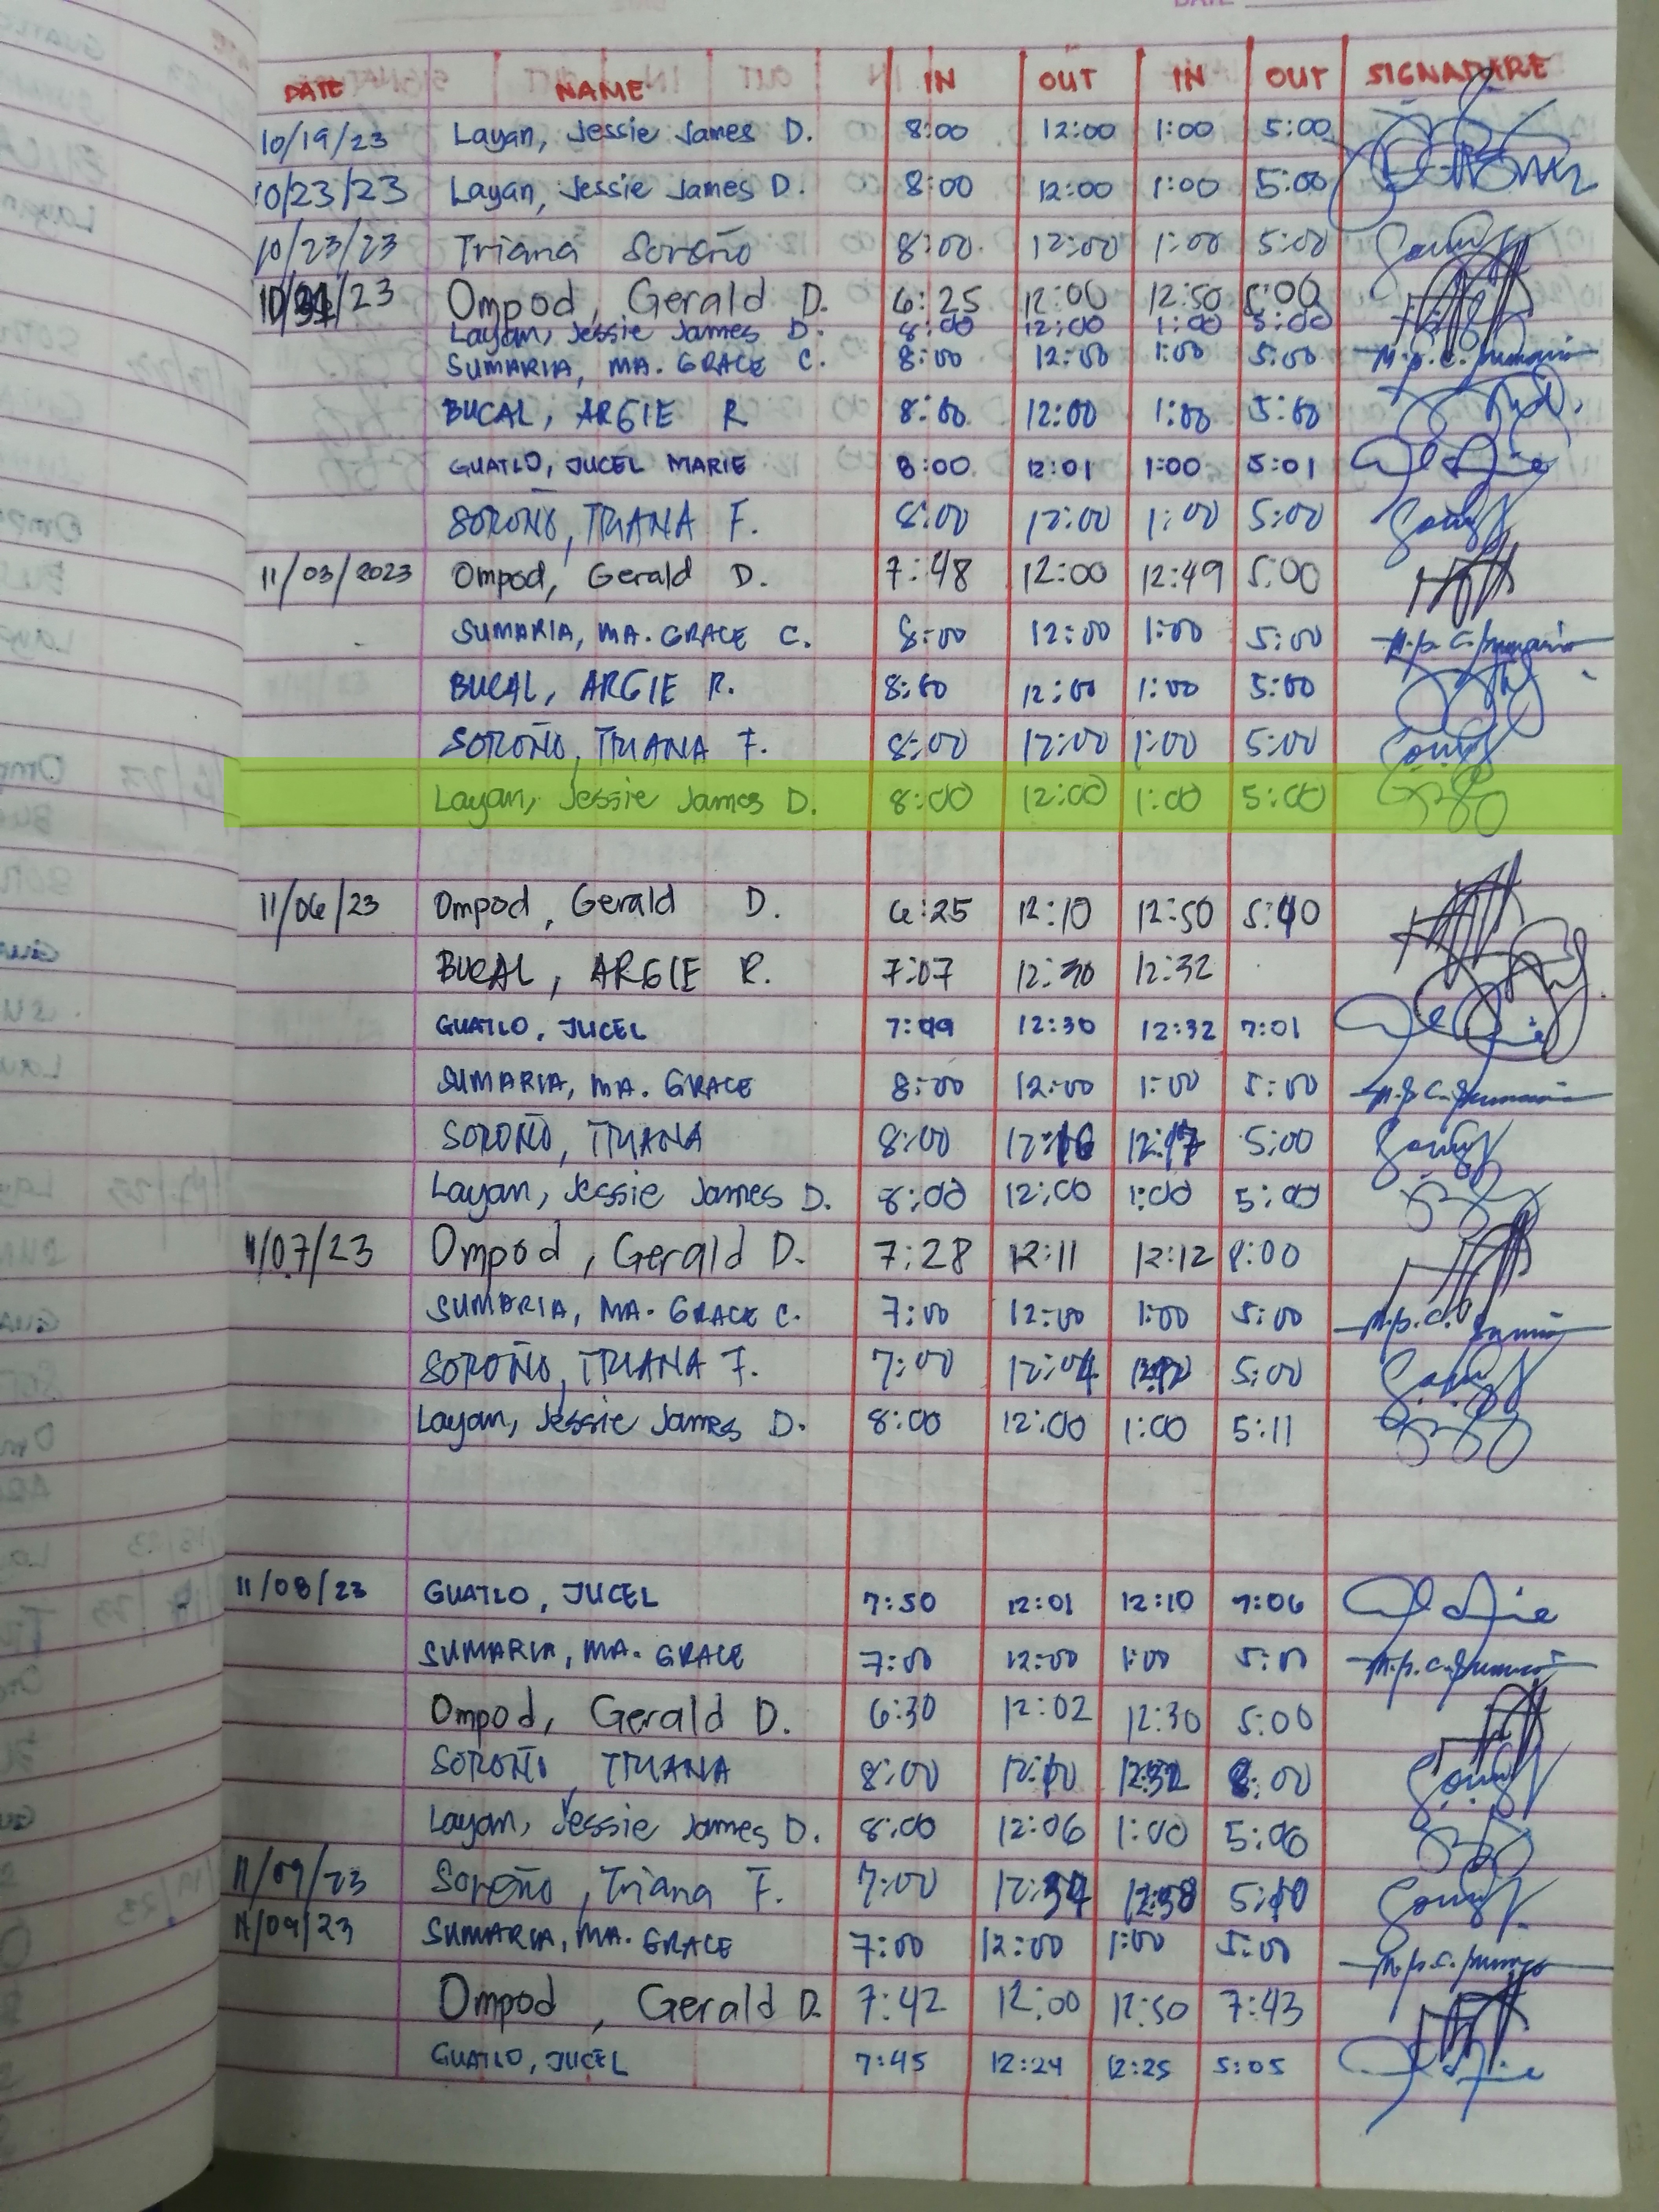 DATE NAME IN OUT IN OUT SIGNATURE
10/19/23 Layan, Jessie James D. 8:00 12:00 1:00 5:00
10/23/23 Layan, Jessie James D. 8:00 12:00 1:00 5:00
10/23/23 Triana Soroño 8:00 12:00 1:00 5:00
10/ /23 Ompod, Gerald D. 6:25 12:00 12:50 5:00
Layan, Jessie James D. 8:00 12:00 1:00 5:00
SUMARIA, MA. GRACE C. 8:00 12:00 1:00 5:00
BUCAL, ARGIE R 8:00 12:00 1:00 5:00
GUATLO, JUCEL MARIE 8:00 12:01 1:00 5:01
SOROÑO, TRIANA F. 8:00 12:00 1:00 5:00
11/03/2023 Ompod, Gerald D. 7:48 12:00 12:49 5:00
SUMARIA, MA. GRACE C. 8:00 12:00 1:00 5:00
BUCAL, ARGIE R. 8:00 12:00 1:00 5:00
SOROÑO, TRIANA F. 8:00 12:00 1:00 5:00
Layan, Jessie James D. 8:00 12:00 1:00 5:00
11/06/23 Ompod, Gerald D. 6:25 12:10 12:50 5:40
BUCAL, ARGIE R. 7:07 12:30 12:32
GUATLO, JUCEL 7:09 12:30 12:32 7:01
SUMARIA, MA. GRACE 8:00 12:00 1:00 5:00
SOROÑO, TRIANA 8:00 12:16 12:17 5:00
Layan, Jessie James D. 8:00 12:00 1:00 5:00
11/07/23 Ompod, Gerald D. 7:28 12:11 12:12 8:00
SUMARIA, MA. GRACE C. 7:00 12:00 1:00 5:00
SOROÑO, TRIANA F. 7:00 12:04 5:00
Layan, Jessie James D. 8:00 12:00 1:00 5:11
11/08/23 GUATLO, JUCEL 7:50 12:01 12:10 7:06
SUMARIA, MA. GRACE 7:00 12:00 1:00 5:00
Ompod, Gerald D. 6:30 12:02 12:30 5:00
SOROÑO, TRIANA 8:00 12:10 12:32 8:00
Layan, Jessie James D. 8:00 12:06 1:00 5:06
11/09/23 Soroño, Triana F. 7:00 12:34 12:38 5:10
11/09/23 SUMARIA, MA. GRACE 7:00 12:00 1:00 5:00
Ompod, Gerald D. 7:42 12:00 12:50 7:43
GUATLO, JUCEL 7:45 12:24 12:25 5:05